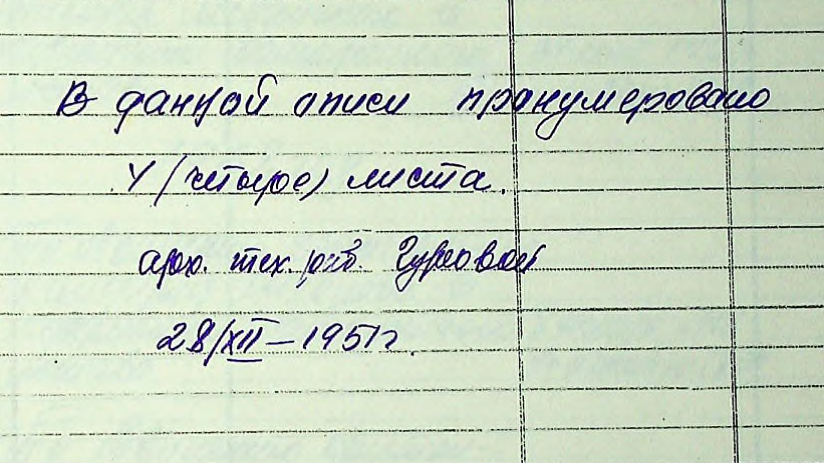 В данной описи пронумеровано
4 (четыре) листа.
арх. тех. раб.
28/XII – 1951 г.